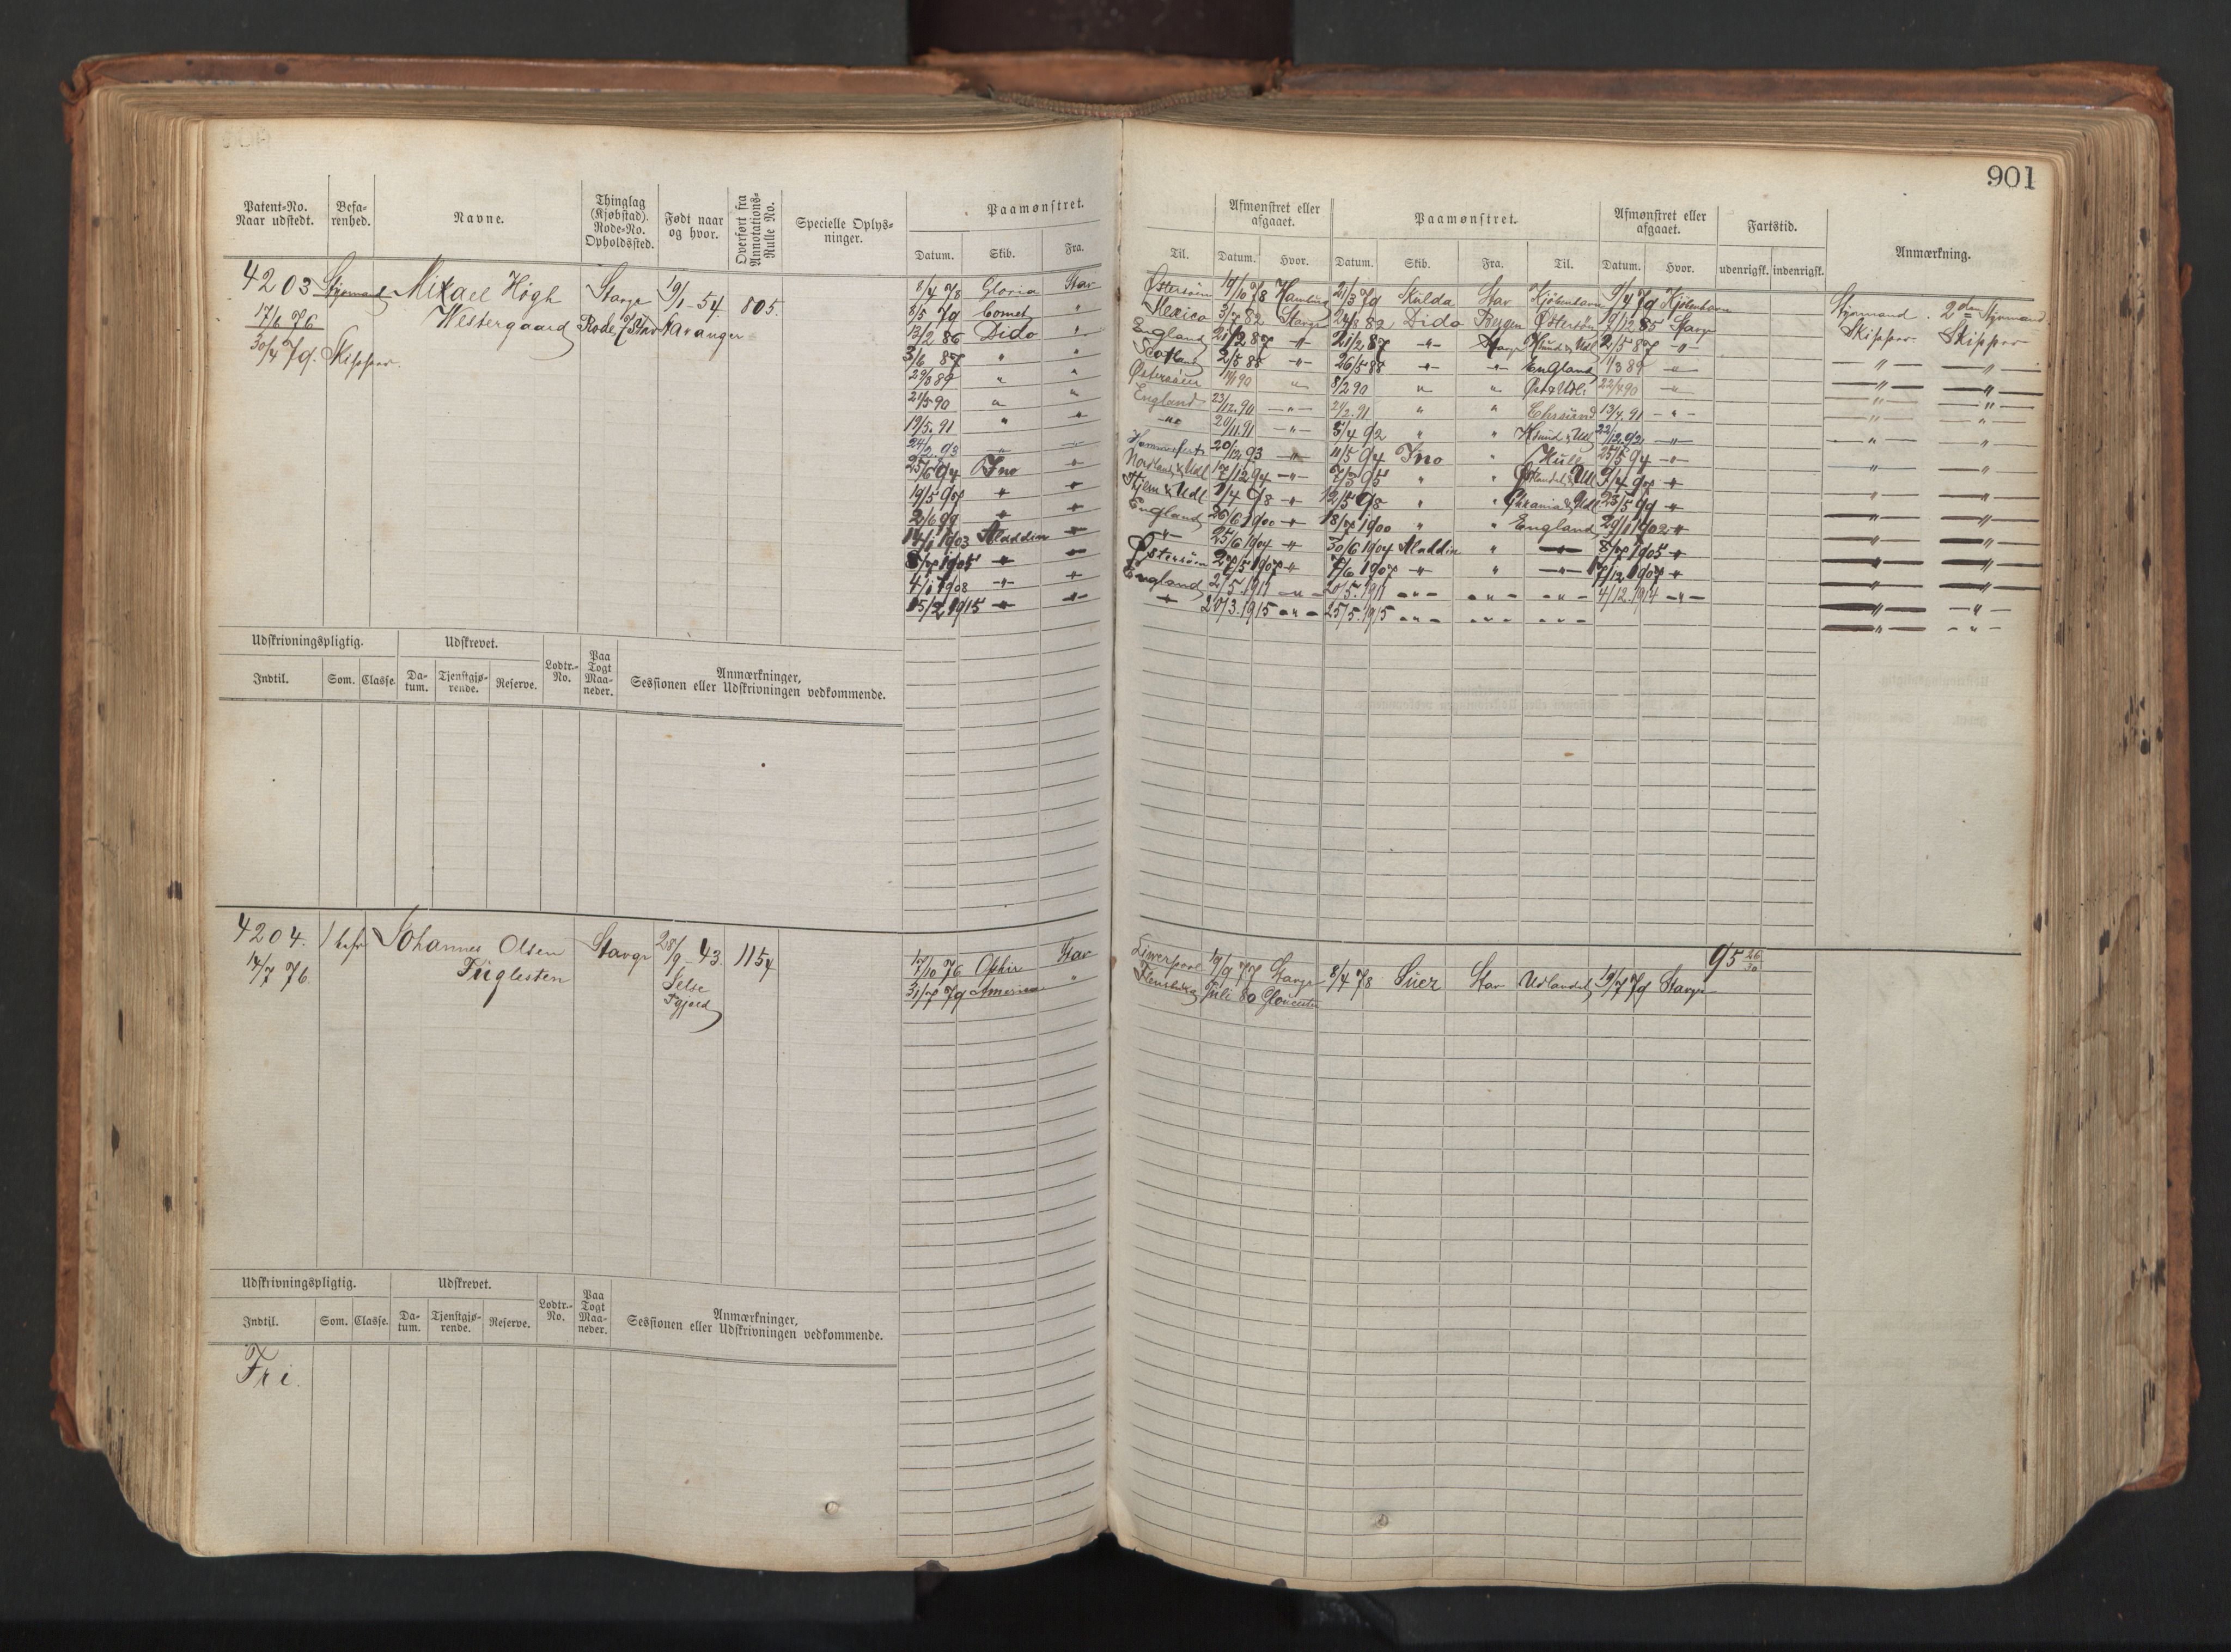 901
Patent-No. Naar udstedt. Befa-renhed. Navne. Thinglag (Kjøbstad). Rode-No. Opholdssted. Født naar og hvor. Overført fra Annotations-Rulle No. Specielle Oplys-ninger. Paamønstret.
Datum. Skib. Fra.
Afmønstret eller afgaaet. Paamønstret. Afmønstret eller afgaaet. Fartstid. Anmærkning.
Til. Datum. Hvor. Datum. Skib. Fra. Til. Datum. Hvor. udenrigsk. indenrigsk.
4203 Styrmand Mikael Högh Stavgr 19/1-54 805.
17/6 76 Westergaard Rode 7 Stav Stavanger
30/4 79. Skipper.
8/4 78 Gloria Stav Østersøen 19/10 78 Hamburg 21/3 79 Skulda Stav Kjöbenhavn 9/4 79 Kjöbenhavn Styrmand. 2den Styrmand
8/5 79 Comet " Mexico 3/7 82 Stavgr 24/8 82 Dido Bergen Østersøen 19/12 85 Stavgr Skipper Skipper
13/2 86 Dido " England 21/2 87 -"- 21/2 87 -"- Stavgr Xsund & Udl 2/5 87 -"-
3/6 87 " " Scotland 2/5 88 -"- 26/5 88 -"- -"- England 1/3 89 -"- -"- -"-
29/3 89 " " Østersøen " 8/2 90 " " 22/4 90 -"- -"- -"-
21/5 90 " " England 23/12.90 -"- 21/2.91 " " Chrsund 13/4.91 -"- -"- -"-
19/5.91 " " -"- 20/11.91 -"- 5/4 92 " " Xsund & Udl 22/12.92 -"- -"- -"-
24/2.93 " -"- Hammerfest 20/12 93 -"- 11/5 94 Ino " Hull 25/5 94 -"- -"- -"-
25/6 94 Ino " Nordland & Udl 17/12 94 -"- 7/3 95 " " Østlandet & Udl 9/4 97 " -"- -"-
19/5 97 " " & Udl 1/4 98 " 12/5 98 " " Chrania & Udl 23/5 99 " -"- -"-
2/6 99 " " England 26/6 1900 " 18/7 1900 " " England 29/11902 " -"- -"-
14/1 1903 Aladdin " -"- 25/6 1904 " 30/6 1904 Aladdin " -"- 8/7 1905 " -"- -"-
8/7 1905 " " Østersøen 27/5 1907 " 7/6 1907 " " -"- 17/12 1907 " -"- -"-
4/1 1908 -"- " England 2/5.1911 -"- 20/5.1911 -"- -"- -"- 4/12.1914 -"- -"- -"-
15/2 1915 " " " 20/3.1915 -"- 25/5.1915 -"- -"- -"- -"- -"-
Udskrivningspligtig. Udskrevet. Lodtr.-No. Paa Togt Maa-neder. Anmærkninger, Sessionen eller Udskrivningen vedkommende.
Indtil. Som. Classe. Da-tum. Tjenstgjø-rende. Reserve.
4204. 1 bef Johannes Olsen Stavgr 28/9-43. 1154
14/7 76. Fuglesten Jelse
17/10 76 Ophir Stav Liverpool 19/9 77 Stavgr 8/4 78 Suez Stav Udlandet 19/7 79 Stavgr 95 26/30
31/7 79 America " Flensburg Juli 80 Gloucester
Udskrivningspligtig. Udskrevet. Lodtr.-No. Paa Togt Maa-neder. Anmærkninger, Sessionen eller Udskrivningen vedkommende.
Indtil. Som. Classe. Da-tum. Tjenstgjø-rende. Reserve.
Fri.